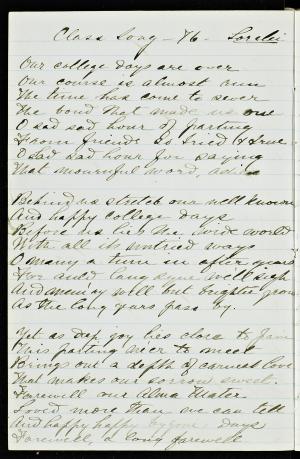 Class Song - 86 - Lorelei
Our college days are over
Our course is almost run
The time has come to sever
The bond that made us one
O sad sad hour of parting
From friends so tried & true
O sad sad hour for saying
That mournful word, adieu
Behind us stretch our well known
And happy college days
Before us lies the wide world
With all its untried ways
O many a time in after years
For auld lang syne we'll sigh
And memory will but brighter grow
As the long years pass by.
Yet as day joy lies close to
This parting nigh to meet
Brings out a depth of earnest love
That makes our sorrow sweet.
Farewell our Alma Mater
Loved more than we can tell
And happy happy bygone days
Farewell, a long farewell